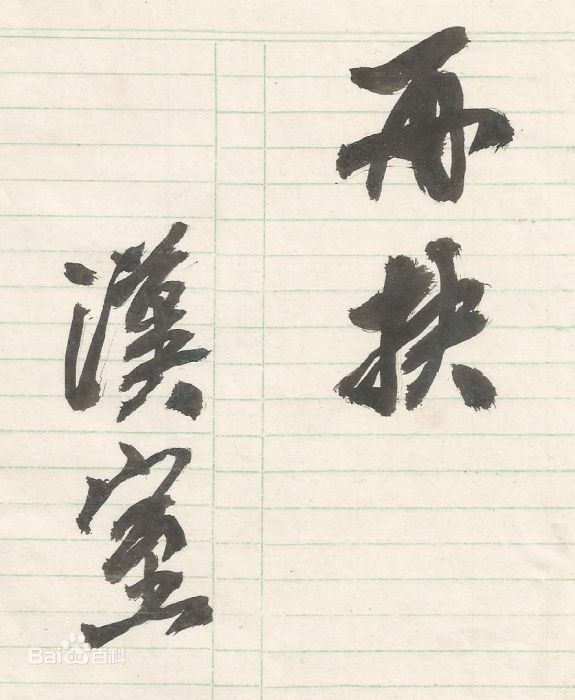 再扶
漢室
Baidu百科